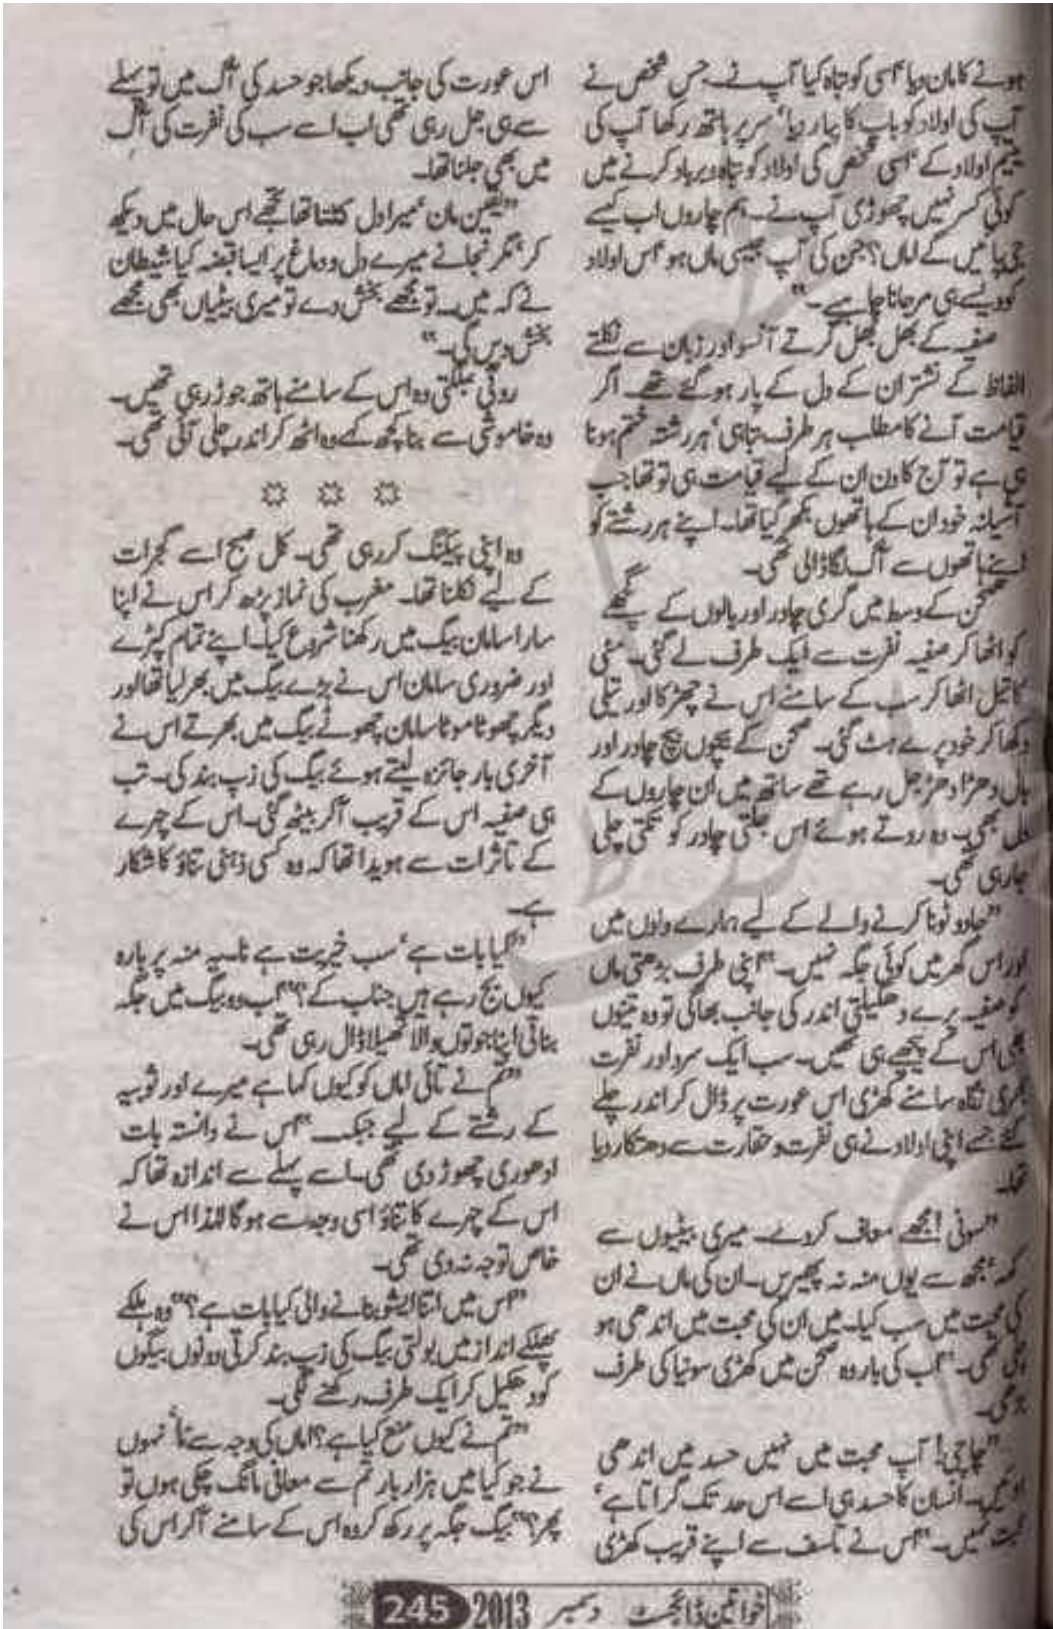 ہونے کا مان دیا‘ اسی کو تباہ کیا آپ نے۔ جس شخص نے
آپ کی اولاد کو باپ کا پیار دیا‘ سر پر ہاتھ رکھا آپ کی
یتیم اولاد کے‘ اسی شخص کی اولاد کو تباہ و برباد کرنے میں
کوئی کسر نہیں چھوڑی آپ نے۔ ہم چاروں اب کیسے
جی پائیں گے اماں؟ جن کی آپ جیسی ماں ہو‘ اس اولاد
کو ویسے ہی مر جانا چاہیے۔“
صفیہ کے بھل بھل گرتے آنسو اور زبان سے نکلتے
الفاظ کے نشتر ان کے دل کے پار ہو گئے تھے۔ اگر
قیامت آنے کا مطلب ہر طرف تباہی‘ ہر رشتہ ختم ہونا
ہی ہے تو آج کا دن ان کے لیے قیامت ہی تو تھا جب
آشیانہ خود ان کے ہاتھوں بکھر گیا تھا۔ اپنے ہر رشتے کو
اپنے ہاتھوں سے آگ لگا ڈالی تھی۔
صحن کے وسط میں گری چادر اور بالوں کے گچھے
کو اٹھا کر صفیہ نفرت سے ایک طرف لے گئی۔ مٹی
کا تیل اٹھا کر سب کے سامنے اس نے چھڑکا اور تیلی
دکھا کر خود پرے ہٹ گئی۔ صحن کے بیچوں بیچ چادر اور
بال دھڑا دھڑ جل رہے تھے ساتھ میں ان چاروں کے
دل بھی۔ وہ روتے ہوئے اس جلتی چادر کو تکتی چلی
جا رہی تھی۔
”جادو ٹونا کرنے والے کے لیے ہمارے دلوں میں
اور اس گھر میں کوئی جگہ نہیں۔“ اپنی طرف بڑھتی ماں
کو صفیہ پرے دھکیلتی اندر کی جانب بھاگی تو وہ تینوں
بھی اس کے پیچھے ہی تھیں۔ سب ایک سرد اور نفرت
بھری نگاہ سامنے کھڑی اس عورت پر ڈال کر اندر چلے
گئے جسے اپنی اولاد نے ہی نفرت و حقارت سے دھتکار دیا
تھا۔
”سونی! مجھے معاف کر دے۔ میری بیٹیوں سے
کہہ‘ مجھ سے یوں منہ نہ پھیریں۔ ان کی ماں نے ان
کی محبت میں سب کیا۔ میں ان کی محبت میں اندھی ہو
گئی تھی۔“ اب کی بار وہ صحن میں کھڑی سونیا کی طرف
بڑھی۔
”چاچی! آپ محبت میں نہیں حسد میں اندھی
ہو گئیں۔ انسان کا حسد ہی اسے اس حد تک گراتا ہے‘
محبت نہیں۔“ اس نے تاسف سے اپنے قریب کھڑی
اس عورت کی جانب دیکھا جو حسد کی آگ میں تو پہلے
سے ہی جل رہی تھی اب اسے سب کی نفرت کی آگ
میں بھی جلنا تھا۔
”یقین مان‘ میرا دل کٹتا تھا تجھے اس حال میں دیکھ
کر‘ مگر نجانے میرے دل و دماغ پر ایسا قبضہ کیا شیطان
نے کہ میں۔ تو مجھے بخش دے تو میری بیٹیاں بھی مجھے
بخش دیں گی۔“
روتی بلکتی وہ اس کے سامنے ہاتھ جوڑ رہی تھیں۔
وہ خاموشی سے بنا کچھ کہے وہ اٹھ کر اندر چلی آئی تھی۔
وہ اپنی پیکنگ کر رہی تھی۔ کل صبح اسے گجرات
کے لیے نکلنا تھا۔ مغرب کی نماز پڑھ کر اس نے اپنا
سارا سامان بیگ میں رکھنا شروع کیا۔ اپنے تمام کپڑے
اور ضروری سامان اس نے بڑے بیگ میں بھر لیا تھا اور
دیگر چھوٹا موٹا سامان چھوٹے بیگ میں بھرتے اس نے
آخری بار جائزہ لیتے ہوئے بیگ کی زپ بند کی۔ تب
ہی صفیہ اس کے قریب آ کر بیٹھ گئی۔ اس کے چہرے
کے تاثرات سے ہویدا تھا کہ وہ کسی ذہنی تناؤ کا شکار
ہے۔
”کیا بات ہے‘ سب خیریت ہے نا۔ یہ منہ پر بارہ
کیوں بج رہے ہیں جناب کے؟“ اب وہ بیگ میں جگہ
بناتی اپنا جوتوں والا تھیلا ڈال رہی تھی۔
”تم نے تائی اماں کو کیوں کہا ہے میرے اور ثوبیہ
کے رشتے کے لیے جبکہ۔“ اس نے دانستہ بات
ادھوری چھوڑ دی تھی۔ اسے پہلے سے اندازہ تھا کہ
اس کے چہرے کا تناؤ اسی وجہ سے ہو گا لہٰذا اس نے
خاص توجہ نہ دی تھی۔
”اس میں اتنا ایشو بنانے والی کیا بات ہے؟“ وہ ہلکے
پھلکے انداز میں بولتی بیگ کی زپ بند کرتی دونوں بیگوں
کو دھکیل کر ایک طرف رکھنے لگی۔
”تم نے کیوں منع کیا ہے؟ اماں کی وجہ سے نا‘ انہوں
نے جو کیا میں ہزار بار تم سے معافی مانگ چکی ہوں تو
پھر؟“ بیگ جگہ پر رکھ کر وہ اس کے سامنے آ کر اس کی
خواتین ڈائجسٹ دسمبر 2013 245